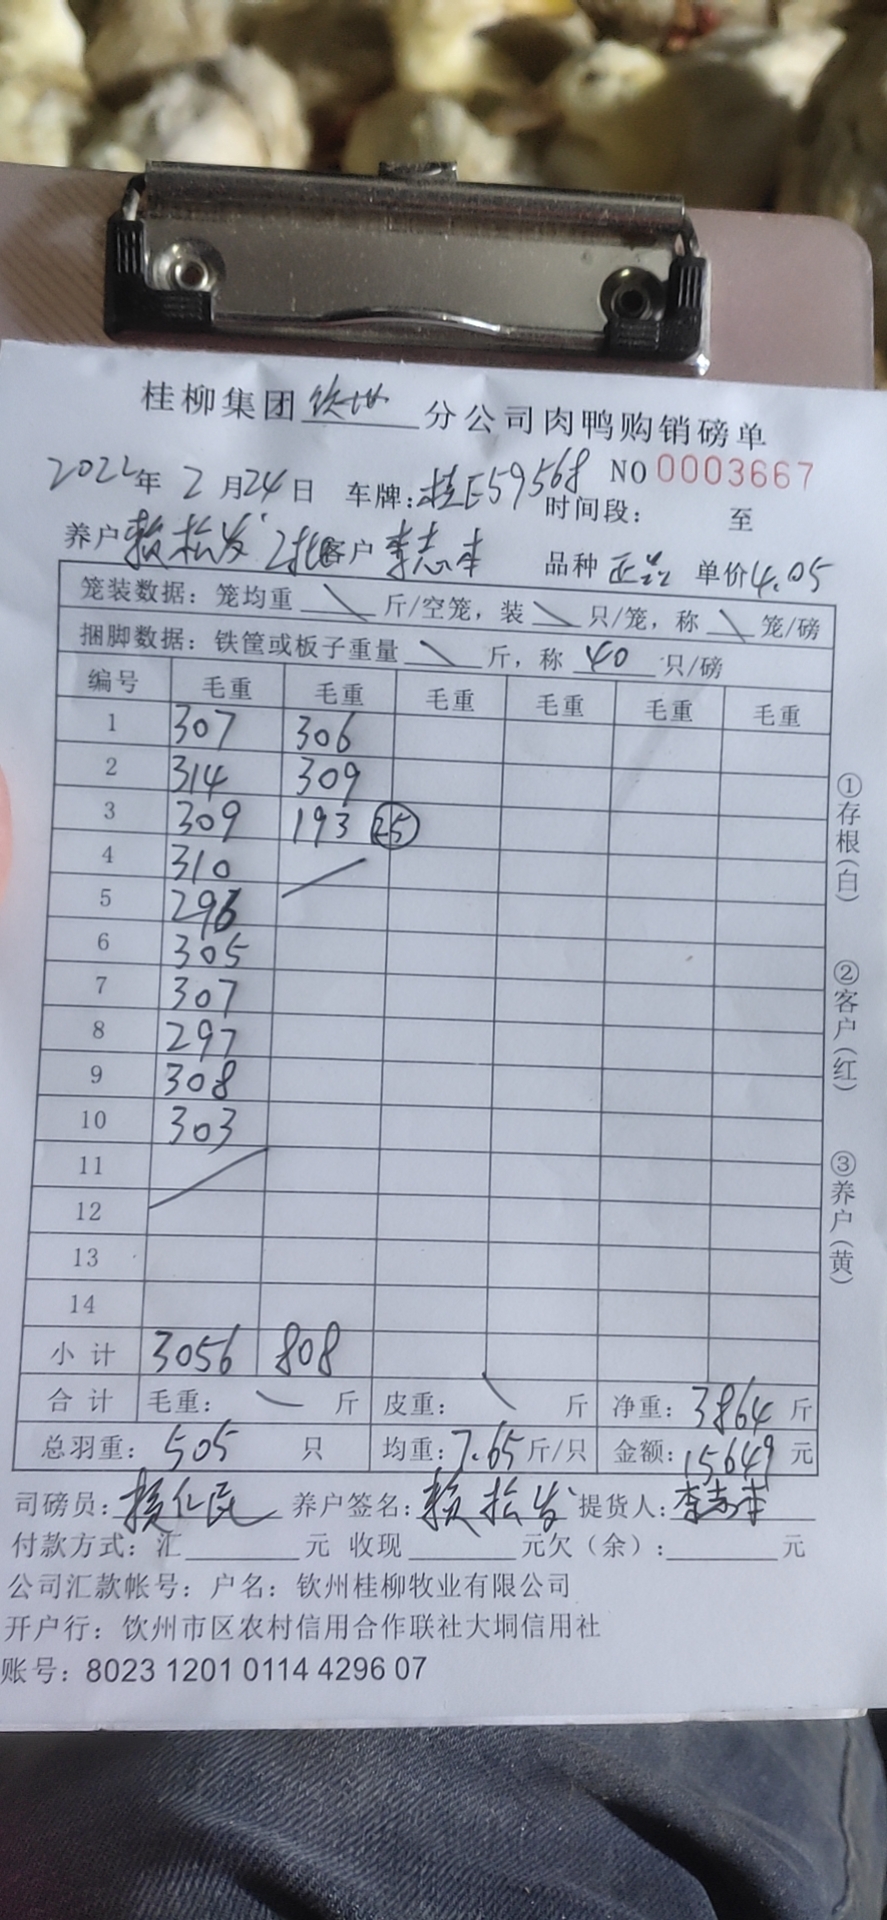 桂柳集团钦州分公司肉鸭购销磅单
2022年2月24日 车牌:桂E59568 NO 0003667
时间段: 至
养户赖松发2批客户李志丰 品种正品 单价4.05
笼装数据:笼均重\斤/空笼,装\只/笼,称\笼/磅
捆脚数据:铁筐或板子重量\斤,称40只/磅
编号 毛重 毛重 毛重 毛重 毛重 毛重
1 307 306
2 314 309
3 309 193 25
4 310
5 296
6 305
7 307
8 297
9 308
10 303
11
12
13
14
小计 3056 808
合计 毛重:\斤 皮重:\斤 净重:3864斤
总羽重:505只 均重:7.65斤/只 金额:15649元
司磅员:赖仁民 养户签名:赖松发 提货人:李志丰
付款方式:汇 元 收现 元欠(余): 元
公司汇款帐号:户名:钦州桂柳牧业有限公司
开户行:钦州市区农村信用合作联社大垌信用社
账号:8023 1201 0114 4296 07
①存根(白)
②客户(红)
③养户(黄)